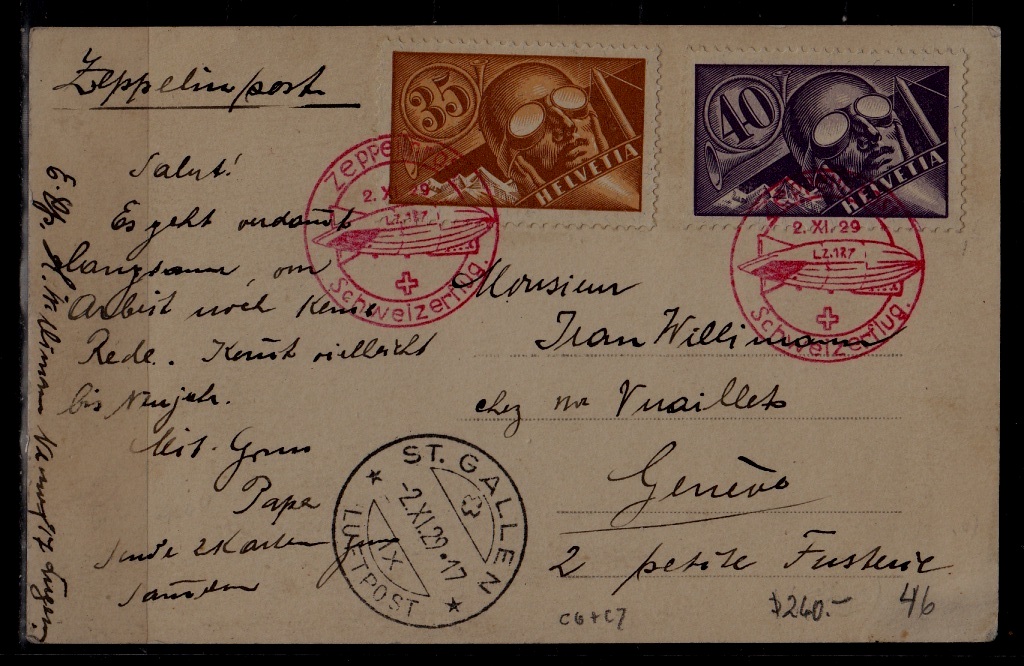 Zeppelinpost
35
HELVETIA
40
HELVETIA
2. XI. 29
LZ.127
Schweizerflug.
2. XI. 29
LZ.127
Schweizerflug.
Salut!
Es geht verdammt
langsam, von
Arbeit noch keine
Rede. Kommt vielleicht
bis Neujahr.
Mit Gruss
Papa
Sende 2 Karten zum
Monsieur
Jean Willimann
chez Mr Vuaillet
Genève
2 petite Fusterie
ST. GALLEN
-2.XI.29.17
IX
LUFTPOST
C6+C7
$260.-
46